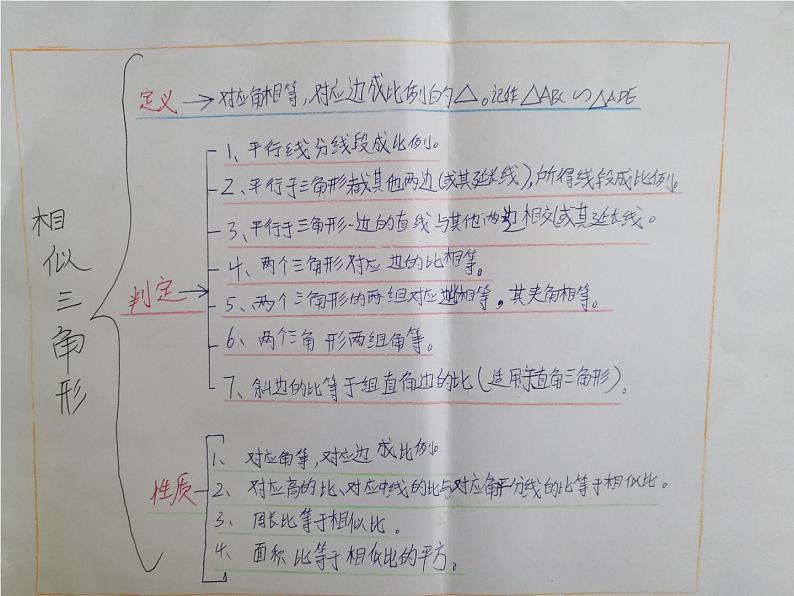 相似三角形
定义 → 对应角相等，对应边成比例的△。记作△ABC∽△ADE
判定 →
1、平行线分线段成比例。
2、平行于三角形截其他两边(或其延长线)，所得线段成比例。
3、平行于三角形一边的直线与其他两边相交(或其延长线。
4、两个三角形对应边的比相等。
5、两个三角形的两组对应边相等，其夹角相等。
6、两个三角形两组角等。
7、斜边的比等于组直角边的比(适用于直角三角形)。
性质
1、对应角等，对应边成比例。
2、对应高的比、对应中线的比与对应角平分线的比等于相似比。
3、周长比等于相似比。
4、面积比等于相似比的平方。